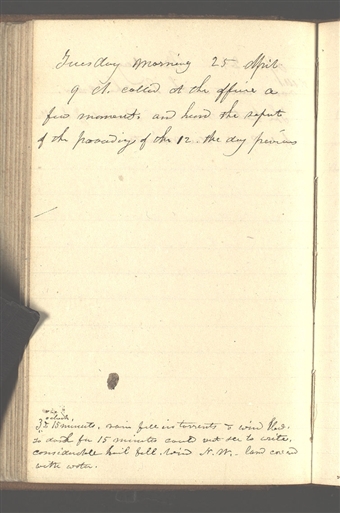 Tuesday Morning 25 April
9 A. called at the office a
few moments and heard the report
of the proceedings of the 12 the day previous
15 minutes, rain fell in torrents & wind
so dark for 15 minutes could not see to write,
considerable hail fell. Wind N.W. land coverd
with water.